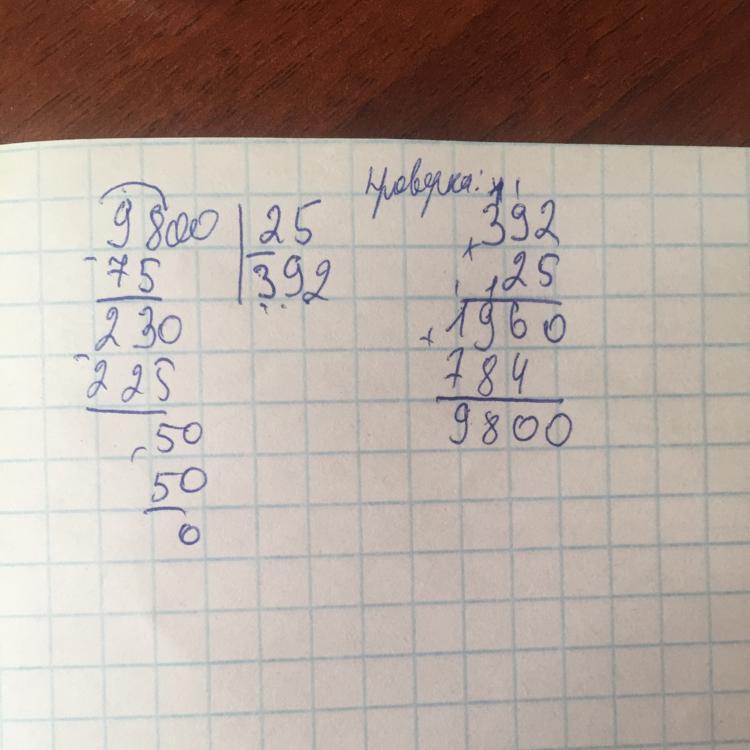 9800 | 25
- 75 | 392
230
- 225
- 50
50
0
Проверка:
392
× 25
+ 1960
784
9800